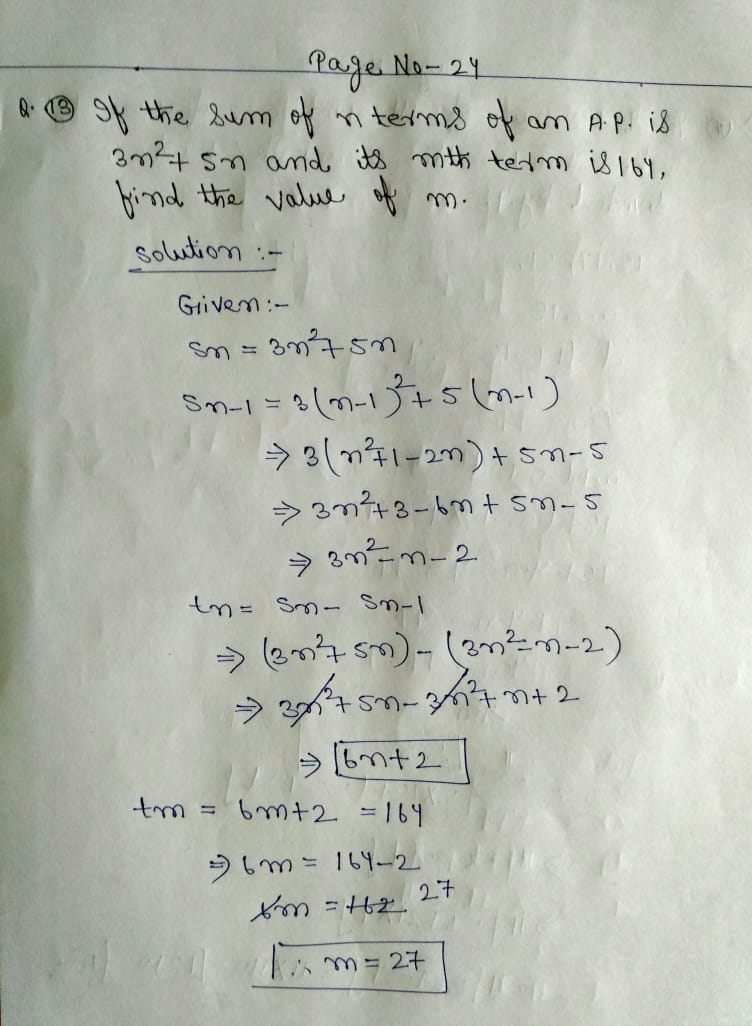 Page No- 24
Q. (13) If the sum of n terms of an A.P. is
3n²+ 5n and its mth term is 164,
find the value of m.
Solution :-
Given:-
Sn = 3n²+5n
Sn-1 = 3(n-1)²+5(n-1)
⇒ 3(n²+1-2n)+5n-5
⇒ 3n²+3-6n+5n-5
⇒ 3n²-n-2
tn= Sn- Sn-1
⇒ (3n²+5n)-(3n²-n-2)
⇒ 3n²+5n-3n²+n+2
⇒ 6n+2
tm = 6m+2 =164
⇒ 6m = 164-2
6m = 162 27
∴ m = 27